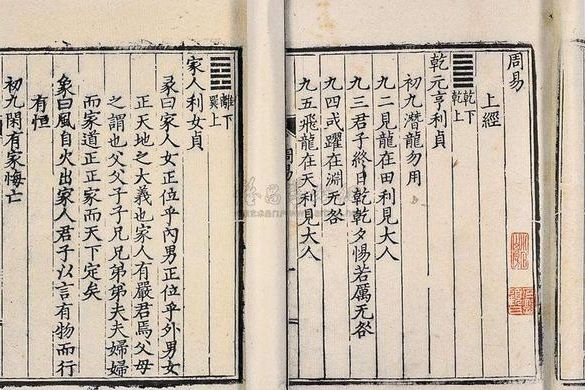 周易
上經
䷀ 乾下
乾上
乾元亨利貞
初九潛龍勿用
九二見龍在田利見大人
九三君子終日乾乾夕惕若厲无咎
九四或躍在淵无咎
九五飛龍在天利見大人
周易
䷤ 離下
巽上
家人利女貞
彖曰家人女正位乎內男正位乎外男女
正天地之大義也家人有嚴君焉父母
之謂也父父子子兄兄弟弟夫夫婦婦
而家道正正家而天下定矣
象曰風自火出家人君子以言有物而行
有恒
初九閑有家悔亡